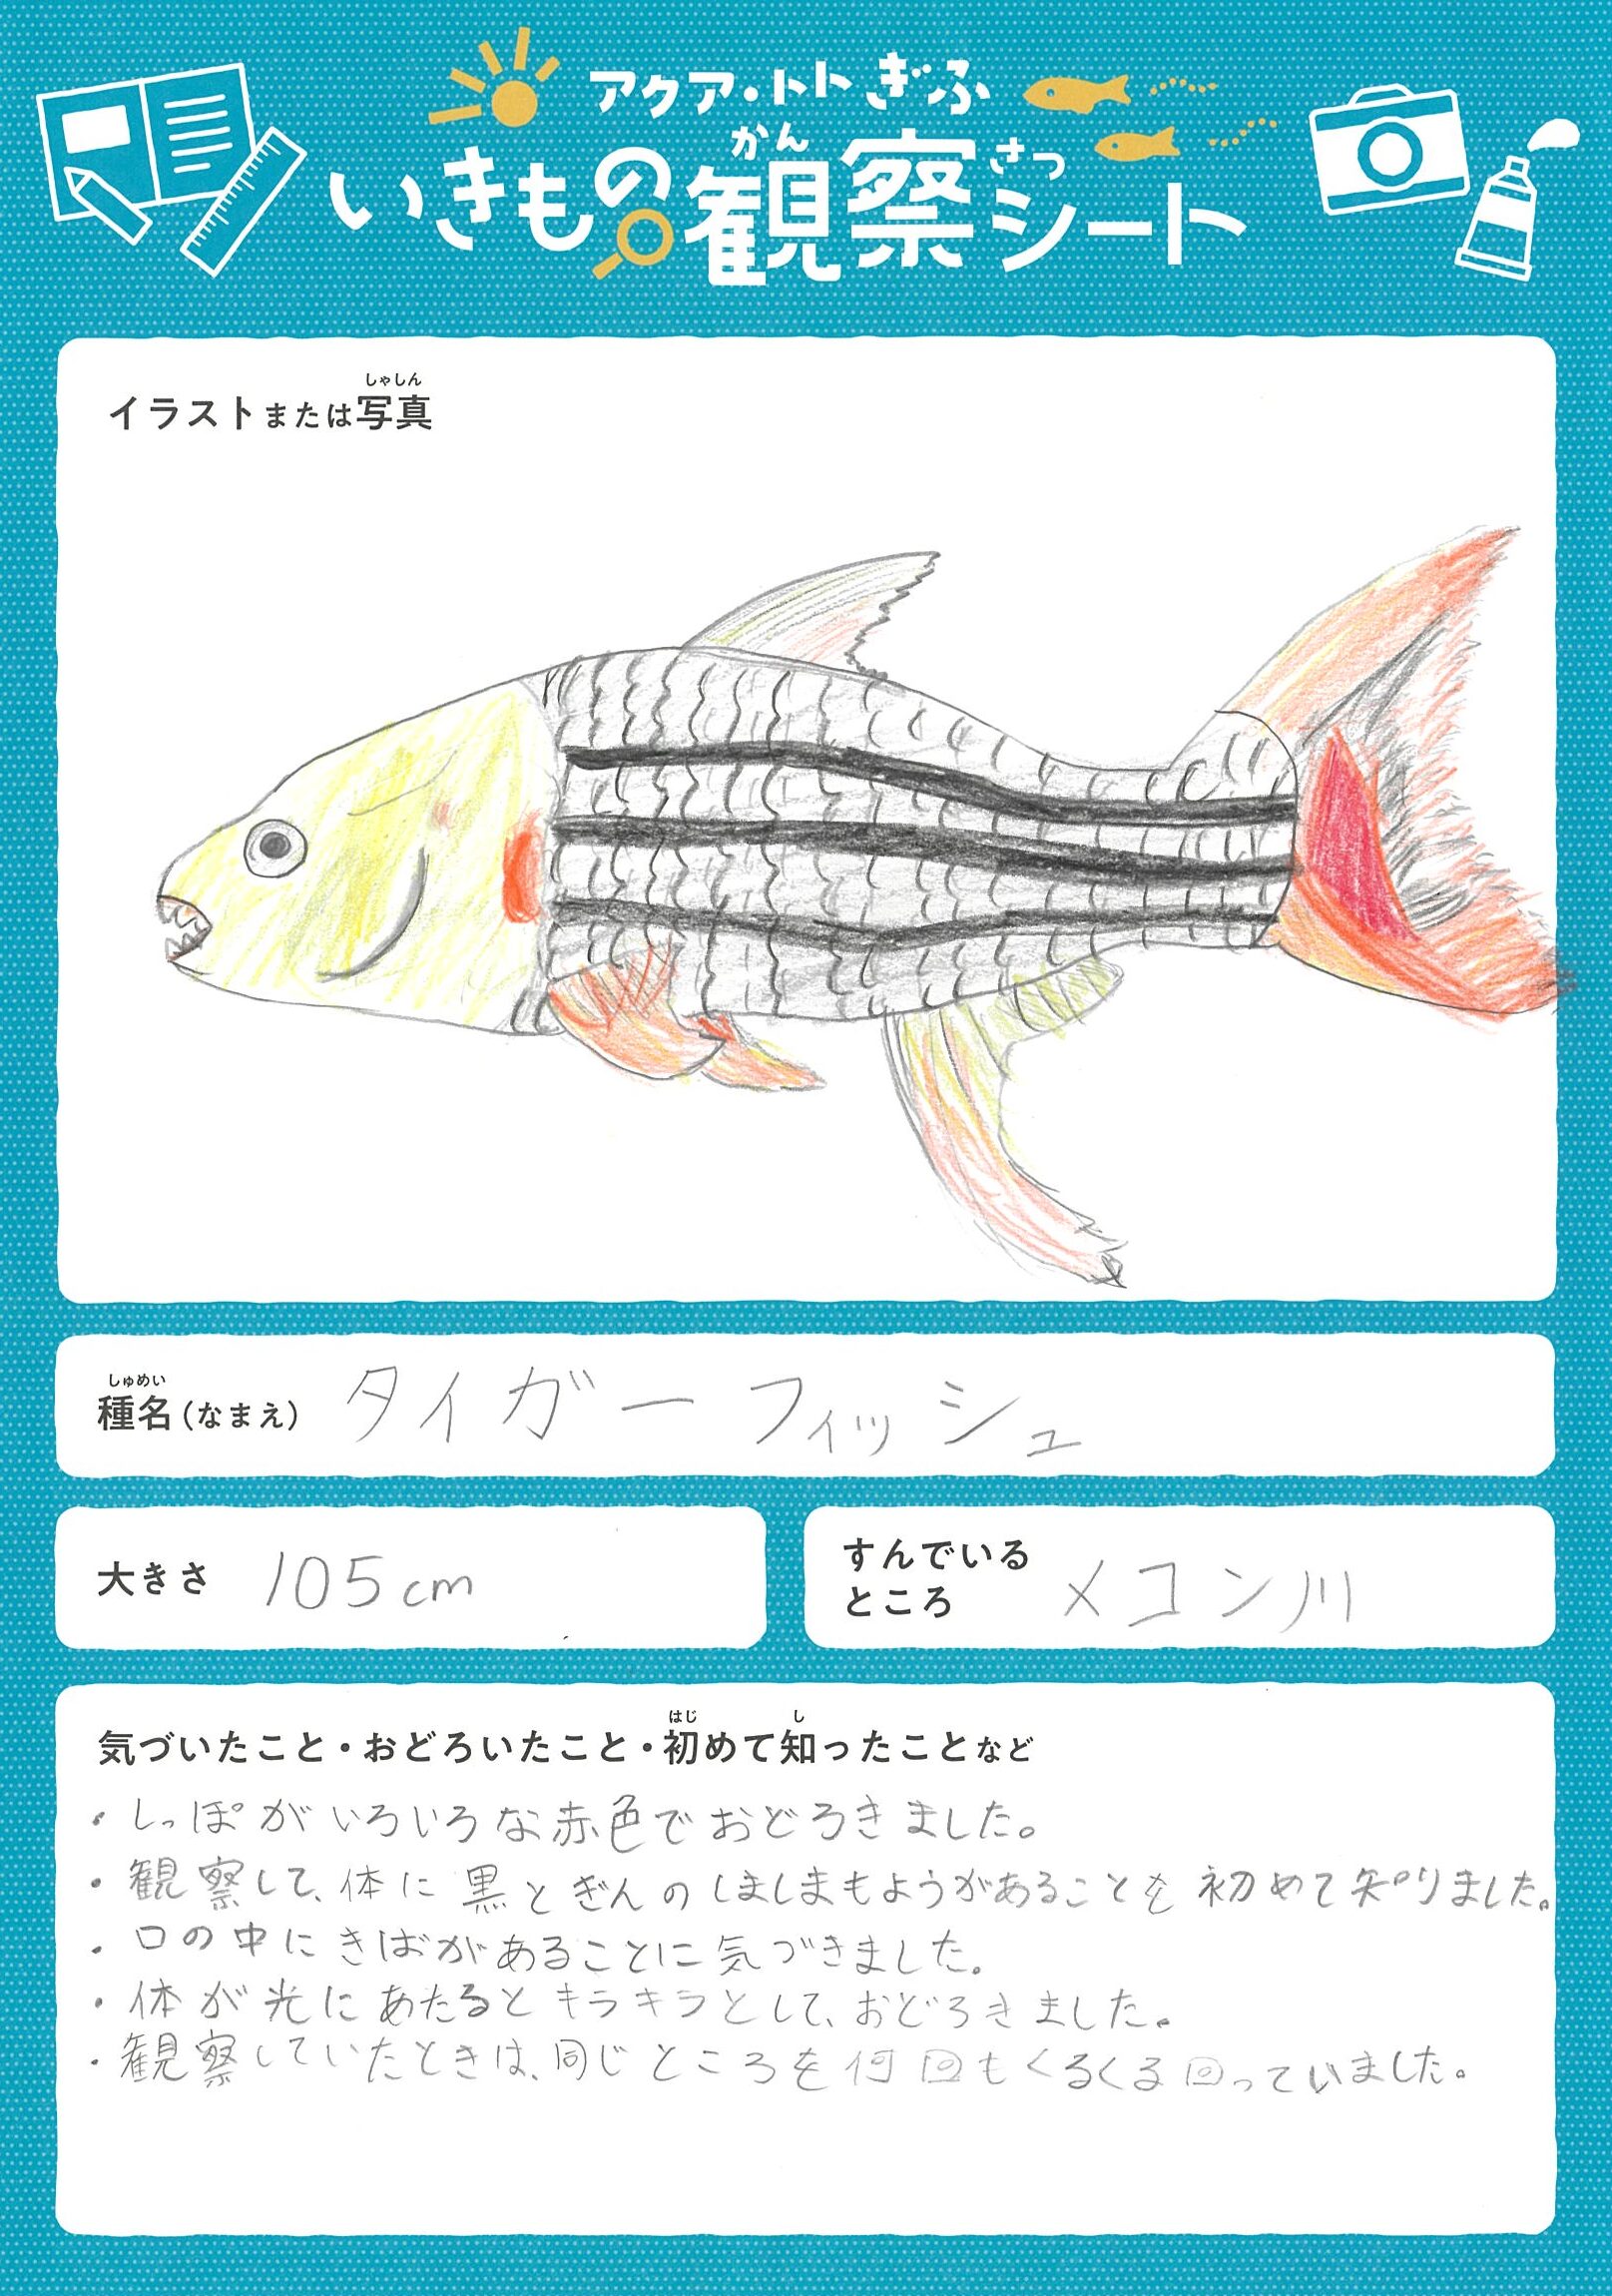 アクア・トトぎふ
かん さつ
いきもの観察シート
しゃしん
イラストまたは写真
しゅめい
種名(なまえ) タイガーフィッシュ
大きさ 105cm
すんでいる
ところ メコン川
はじ し
気づいたこと・おどろいたこと・初めて知ったことなど
・しっぽがいろいろな赤色でおどろきました。
・観察して、体に黒とぎんのしましまもようがあることを初めて知りました。
・口の中にきばがあることに気づきました。
・体が光にあたるとキラキラとして、おどろきました。
・観察していたときは、同じところを何回もくるくる回っていました。